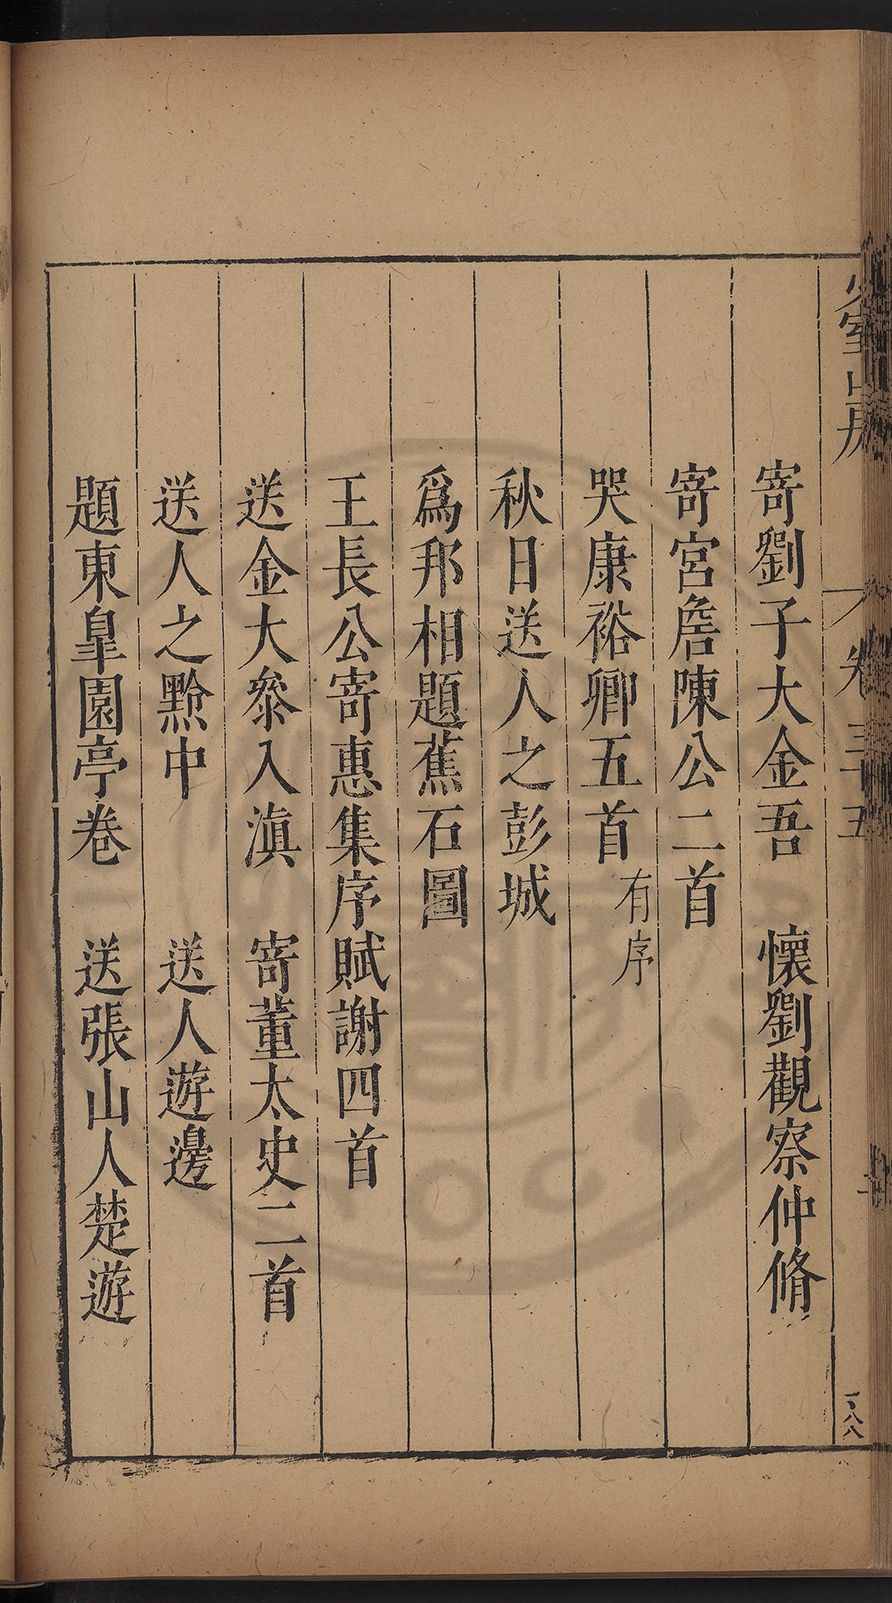 少室山房 卷三十五
寄劉子大金吾 懷劉觀察仲脩
寄宮詹陳公二首
哭康裕卿五首 有序
秋日送人之彭城
爲邦相題蕉石圖
王長公寄惠集序賦謝四首
送金大參入滇 寄董太史二首
送人之黔中 送人遊邊
題東臯園亭卷 送張山人楚遊